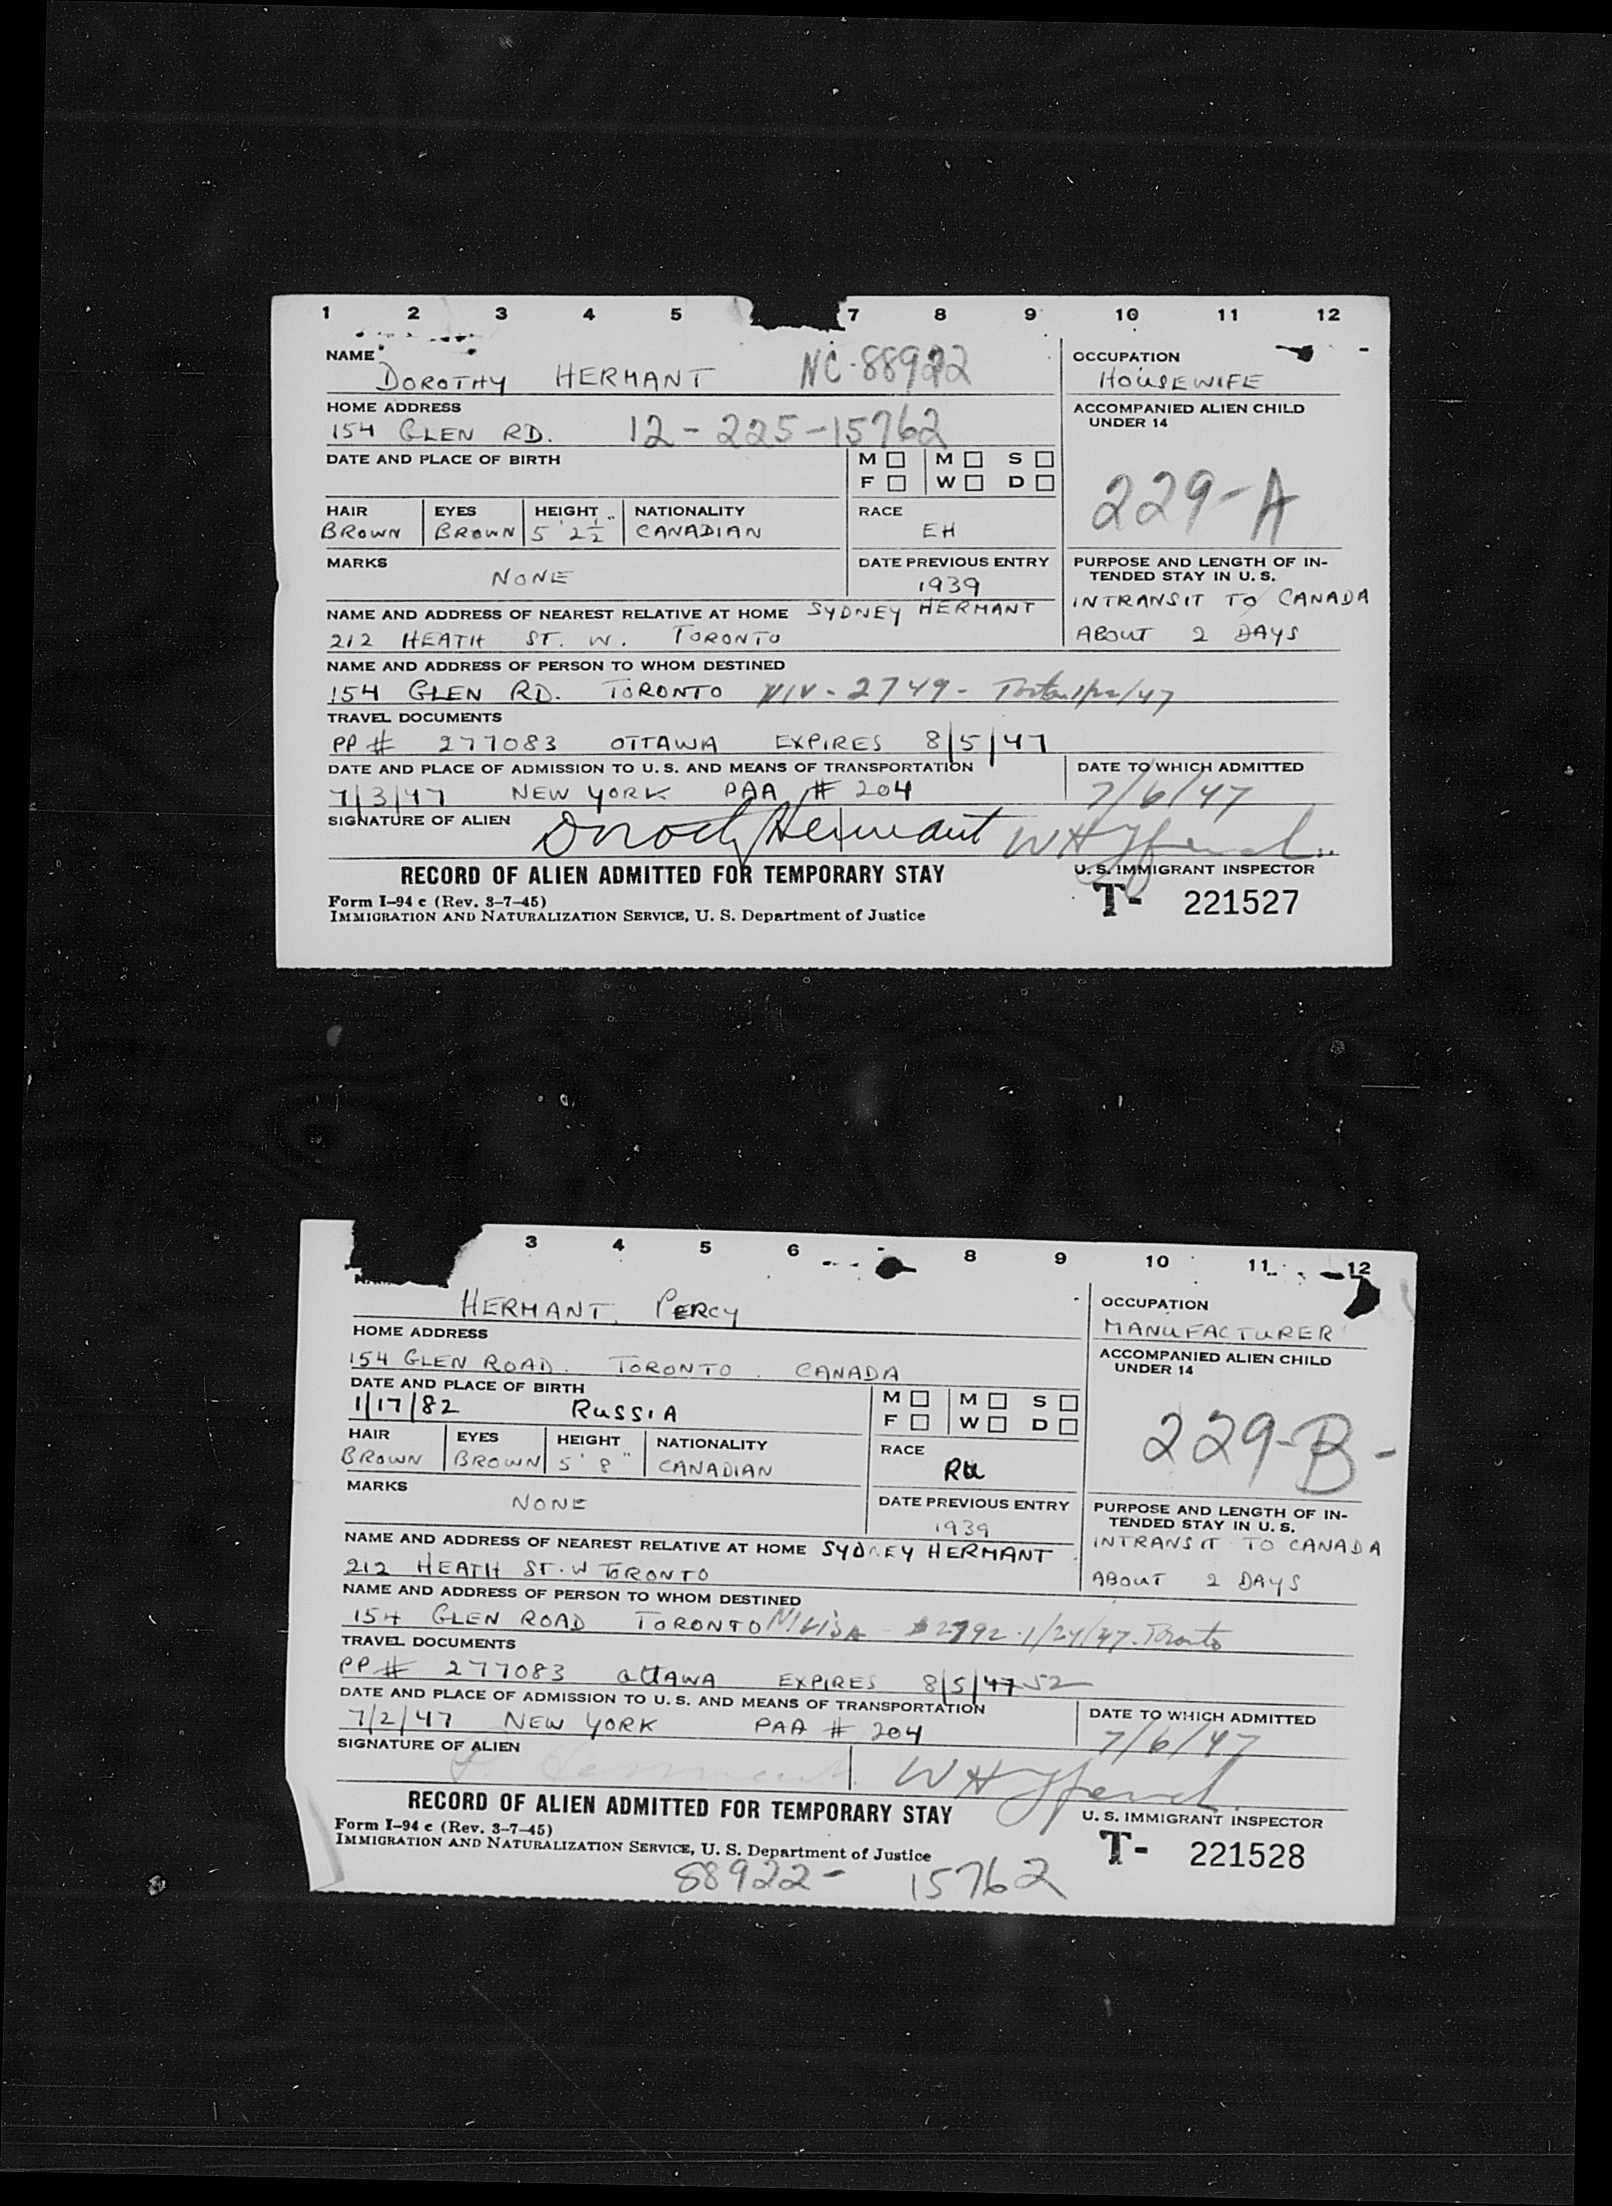 1 2 3 4 5 7 8 9 10 11 12
NAME DOROTHY HERMANT NC-88922
OCCUPATION
HOUSEWIFE
HOME ADDRESS
154 GLEN RD. 12-225-15762
ACCOMPANIED ALIEN CHILD
UNDER 14
229-A
DATE AND PLACE OF BIRTH
M ☐ M ☐ S ☐
F ☐ W ☐ D ☐
HAIR EYES HEIGHT NATIONALITY RACE
BROWN BROWN 5' 2½" CANADIAN EH
MARKS NONE
DATE PREVIOUS ENTRY
1939
PURPOSE AND LENGTH OF IN-
TENDED STAY IN U. S.
INTRANSIT TO CANADA
ABOUT 2 DAYS
NAME AND ADDRESS OF NEAREST RELATIVE AT HOME SYDNEY HERMANT
212 HEATH ST. W. TORONTO
NAME AND ADDRESS OF PERSON TO WHOM DESTINED
154 GLEN RD. TORONTO - 2749 -
TRAVEL DOCUMENTS
PP # 277083 OTTAWA EXPIRES 8/5/47
DATE AND PLACE OF ADMISSION TO U. S. AND MEANS OF TRANSPORTATION
7/3/47 NEW YORK PAA # 204
DATE TO WHICH ADMITTED
7/6/47
SIGNATURE OF ALIEN Dorothy Hermant
RECORD OF ALIEN ADMITTED FOR TEMPORARY STAY
U. S. IMMIGRANT INSPECTOR
Form I-94 c (Rev. 3-7-45)
IMMIGRATION AND NATURALIZATION SERVICE, U. S. Department of Justice
T- 221527
3 4 5 6 8 9 10 11 12
HERMANT, PERCY
OCCUPATION
MANUFACTURER
HOME ADDRESS
154 GLEN ROAD. TORONTO. CANADA
ACCOMPANIED ALIEN CHILD
UNDER 14
229-B-
DATE AND PLACE OF BIRTH
1/17/82 RUSSIA
M ☐ M ☐ S ☐
F ☐ W ☐ D ☐
HAIR EYES HEIGHT NATIONALITY RACE
BROWN BROWN 5' 8" CANADIAN RU
MARKS NONE
DATE PREVIOUS ENTRY
1939
PURPOSE AND LENGTH OF IN-
TENDED STAY IN U. S.
INTRANSIT TO CANADA
ABOUT 2 DAYS
NAME AND ADDRESS OF NEAREST RELATIVE AT HOME SYDNEY HERMANT
212 HEATH ST. W TORONTO
NAME AND ADDRESS OF PERSON TO WHOM DESTINED
154 GLEN ROAD TORONTO 1/24/47. Toronto
TRAVEL DOCUMENTS
PP # 277083 OTTAWA EXPIRES 8/5/47 52
DATE AND PLACE OF ADMISSION TO U. S. AND MEANS OF TRANSPORTATION
7/2/47 NEW YORK PAA # 204
DATE TO WHICH ADMITTED
7/6/47
SIGNATURE OF ALIEN
RECORD OF ALIEN ADMITTED FOR TEMPORARY STAY
U. S. IMMIGRANT INSPECTOR
Form I-94 c (Rev. 3-7-45)
IMMIGRATION AND NATURALIZATION SERVICE, U. S. Department of Justice
T- 221528
88922- 15762